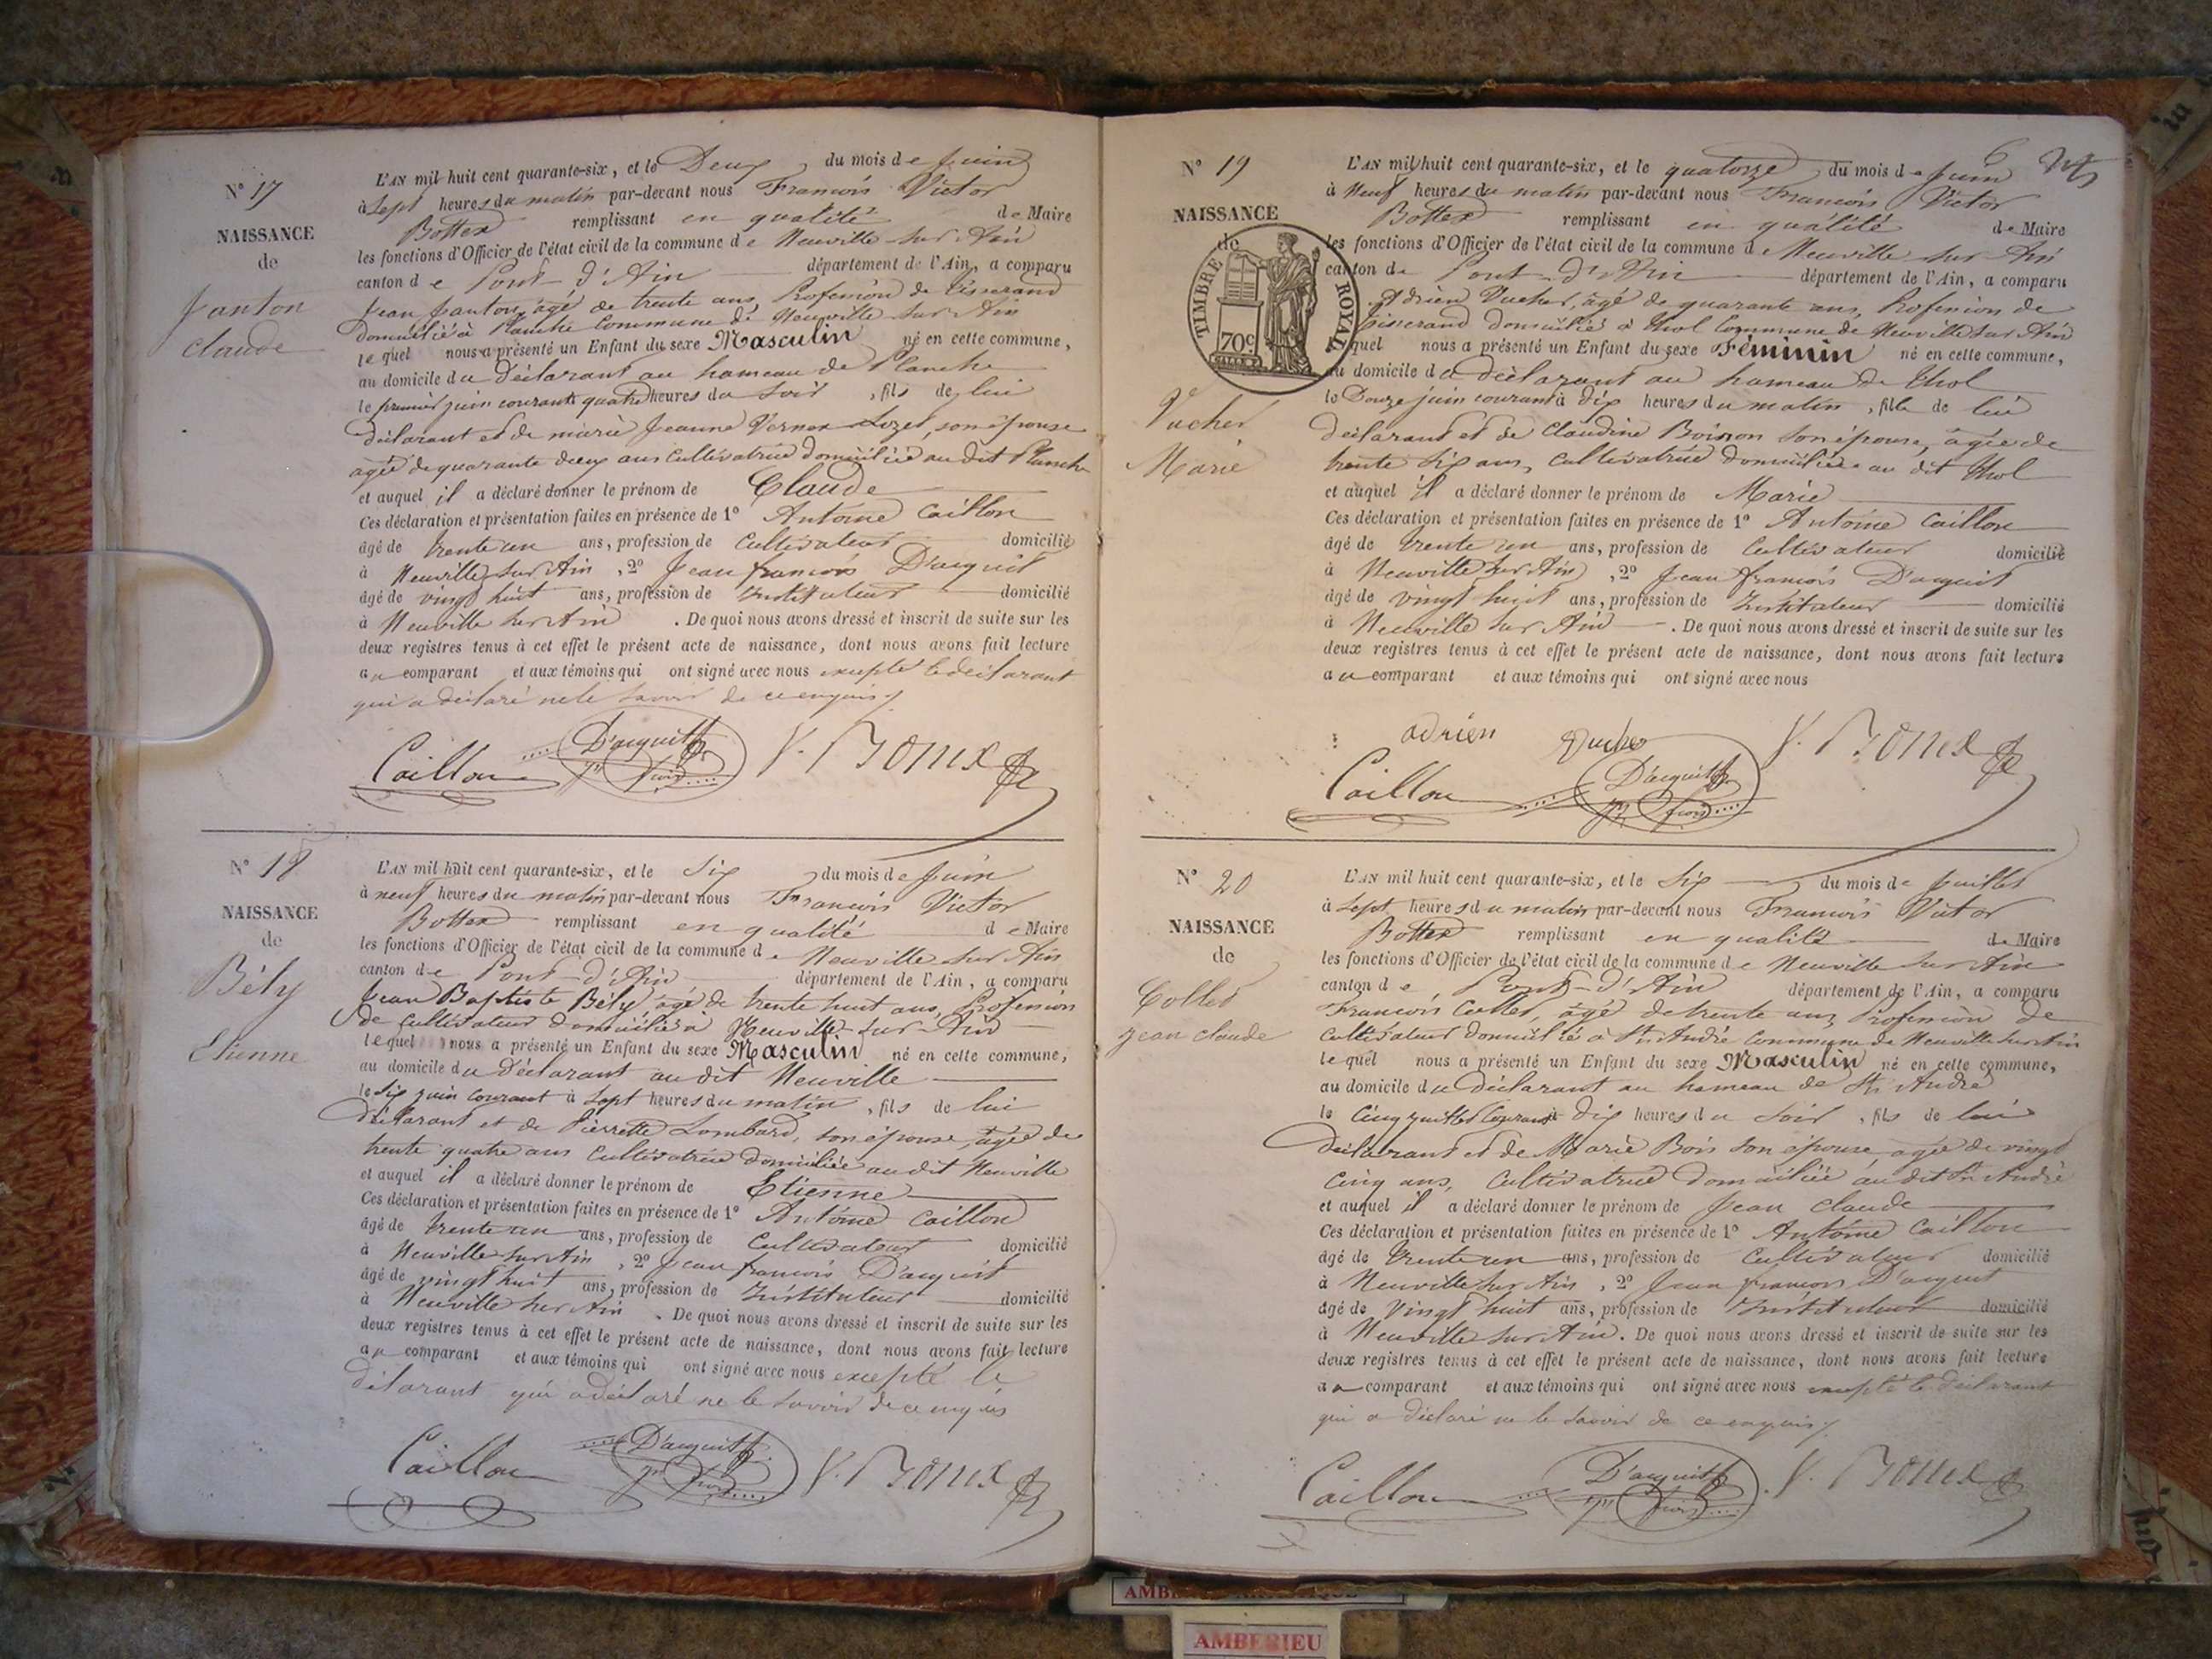 N° 17
NAISSANCE
de
Janton
Claude
L'AN mil huit cent quarante-six, et le Deux du mois de Juin
à Sept heures du matin par-devant nous François Victor
Bottex remplissant en qualité de Maire
les fonctions d'Officier de l'état civil de la commune de Neuville sur Ain
canton de Pont-d'Ain département de l'Ain, a comparu
Jean Janton, âgé de trente ans, Profession de tisserand
domicilié à Planche Commune de Neuville sur Ain
lequel nous a présenté un Enfant du sexe Masculin né en cette commune,
au domicile du Déclarant au hameau de Planche
le premier juin courant à quatre heures du Soir, fils de lui
déclarant et de marie Jeanne son épouse
agée de quarante deux ans Cultivatrice domiciliée au dit Planche
et auquel il a déclaré donner le prénom de Claude
Ces déclaration et présentation faites en présence de 1° Antoine Caillon
âgé de trente un ans, profession de Cultivateur domicilié
à Neuville sur Ain, 2° Jean françois D'acquit
âgé de vingt huit ans, profession de Instituteur domicilié
à Neuville sur Ain. De quoi nous avons dressé et inscrit de suite sur les
deux registres tenus à cet effet le présent acte de naissance, dont nous avons fait lecture
au comparant et aux témoins qui ont signé avec nous excepté le déclarant
qui a déclaré ne le Savoir de ce enquis
Caillon D'acquit V. Bottex
N° 18
NAISSANCE
de
Bély
Etienne
L'AN mil huit cent quarante-six, et le Six du mois de Juin
à neuf heures du matin par-devant nous François Victor
Bottex remplissant en qualité de Maire
les fonctions d'Officier de l'état civil de la commune de Neuville sur Ain
canton de Pont-d'Ain département de l'Ain, a comparu
Jean Baptiste Bély, âgé de trente huit ans, Profession
de Cultivateur domicilié à Neuville sur Ain
lequel nous a présenté un Enfant du sexe Masculin né en cette commune,
au domicile du Déclarant au dit Neuville
le Six juin courant à Sept heures du matin, fils de lui
déclarant et de Pierrette Lombard, son épouse, âgée de
trente quatre ans Cultivatrice domiciliée au dit Neuville
et auquel il a déclaré donner le prénom de Etienne
Ces déclaration et présentation faites en présence de 1° Antoine Caillon
âgé de trente un ans, profession de Cultivateur domicilié
à Neuville sur Ain, 2° Jean françois D'acquit
âgé de vingt huit ans, profession de Instituteur domicilié
à Neuville sur Ain. De quoi nous avons dressé et inscrit de suite sur les
deux registres tenus à cet effet le présent acte de naissance, dont nous avons fait lecture
au comparant et aux témoins qui ont signé avec nous excepté le
déclarant qui a déclaré ne le Savoir de ce enquis
Caillon D'acquit V. Bottex
6
N° 19
NAISSANCE
de
TIMBRE ROYAL
70c
Vucher
Marie
L'AN mil huit cent quarante-six, et le quatorze du mois de Juin
à Neuf heures du matin par-devant nous François Victor
Bottex remplissant en qualité de Maire
les fonctions d'Officier de l'état civil de la commune de Neuville sur Ain
canton de Pont-d'Ain département de l'Ain, a comparu
Adrien Vucher, âgé de quarante ans, Profession de
tisserand domicilié à Thol Commune de Neuville sur Ain
lequel nous a présenté un Enfant du sexe Féminin né en cette commune,
au domicile du déclarant au hameau de Thol
le Douze juin courant à dix heures du matin, fille de lui
déclarant et de Claudine Boisson son épouse, âgée de
trente six ans, Cultivatrice domiciliée au dit Thol
et auquel il a déclaré donner le prénom de Marie
Ces déclaration et présentation faites en présence de 1° Antoine Caillon
âgé de trente un ans, profession de Cultivateur domicilié
à Neuville sur Ain, 2° Jean françois D'acquit
âgé de vingt huit ans, profession de Instituteur domicilié
à Neuville sur Ain. De quoi nous avons dressé et inscrit de suite sur les
deux registres tenus à cet effet le présent acte de naissance, dont nous avons fait lecture
au comparant et aux témoins qui ont signé avec nous
adrien Vucher V. Bottex
Caillon D'acquit
N° 20
NAISSANCE
de
Collet
Jean Claude
L'AN mil huit cent quarante-six, et le Six du mois de Juillet
à Sept heures du matin par-devant nous François Victor
Bottex remplissant en qualité de Maire
les fonctions d'Officier de l'état civil de la commune de Neuville sur Ain
canton de Pont-d'Ain département de l'Ain, a comparu
François Collet, âgé de trente ans, Profession de
Cultivateur domicilié à St. André Commune de Neuville sur Ain
lequel nous a présenté un Enfant du sexe Masculin né en cette commune,
au domicile du Déclarant au hameau de St. André
le Cinq juillet Courant à dix heures du Soir, fils de lui
déclarant et de Marie Bois son épouse agée de vingt
Cinq ans, Cultivatrice domiciliée au dit St. André
et auquel il a déclaré donner le prénom de Jean Claude
Ces déclaration et présentation faites en présence de 1° Antoine Caillon
âgé de trente un ans, profession de Cultivateur domicilié
à Neuville sur Ain, 2° Jean françois D'acquit
âgé de vingt huit ans, profession de Instituteur domicilié
à Neuville sur Ain. De quoi nous avons dressé et inscrit de suite sur les
deux registres tenus à cet effet le présent acte de naissance, dont nous avons fait lecture
au comparant et aux témoins qui ont signé avec nous excepté le déclarant
qui a déclaré ne le Savoir de ce enquis
Caillon D'acquit V. Bottex
AMBERIEU